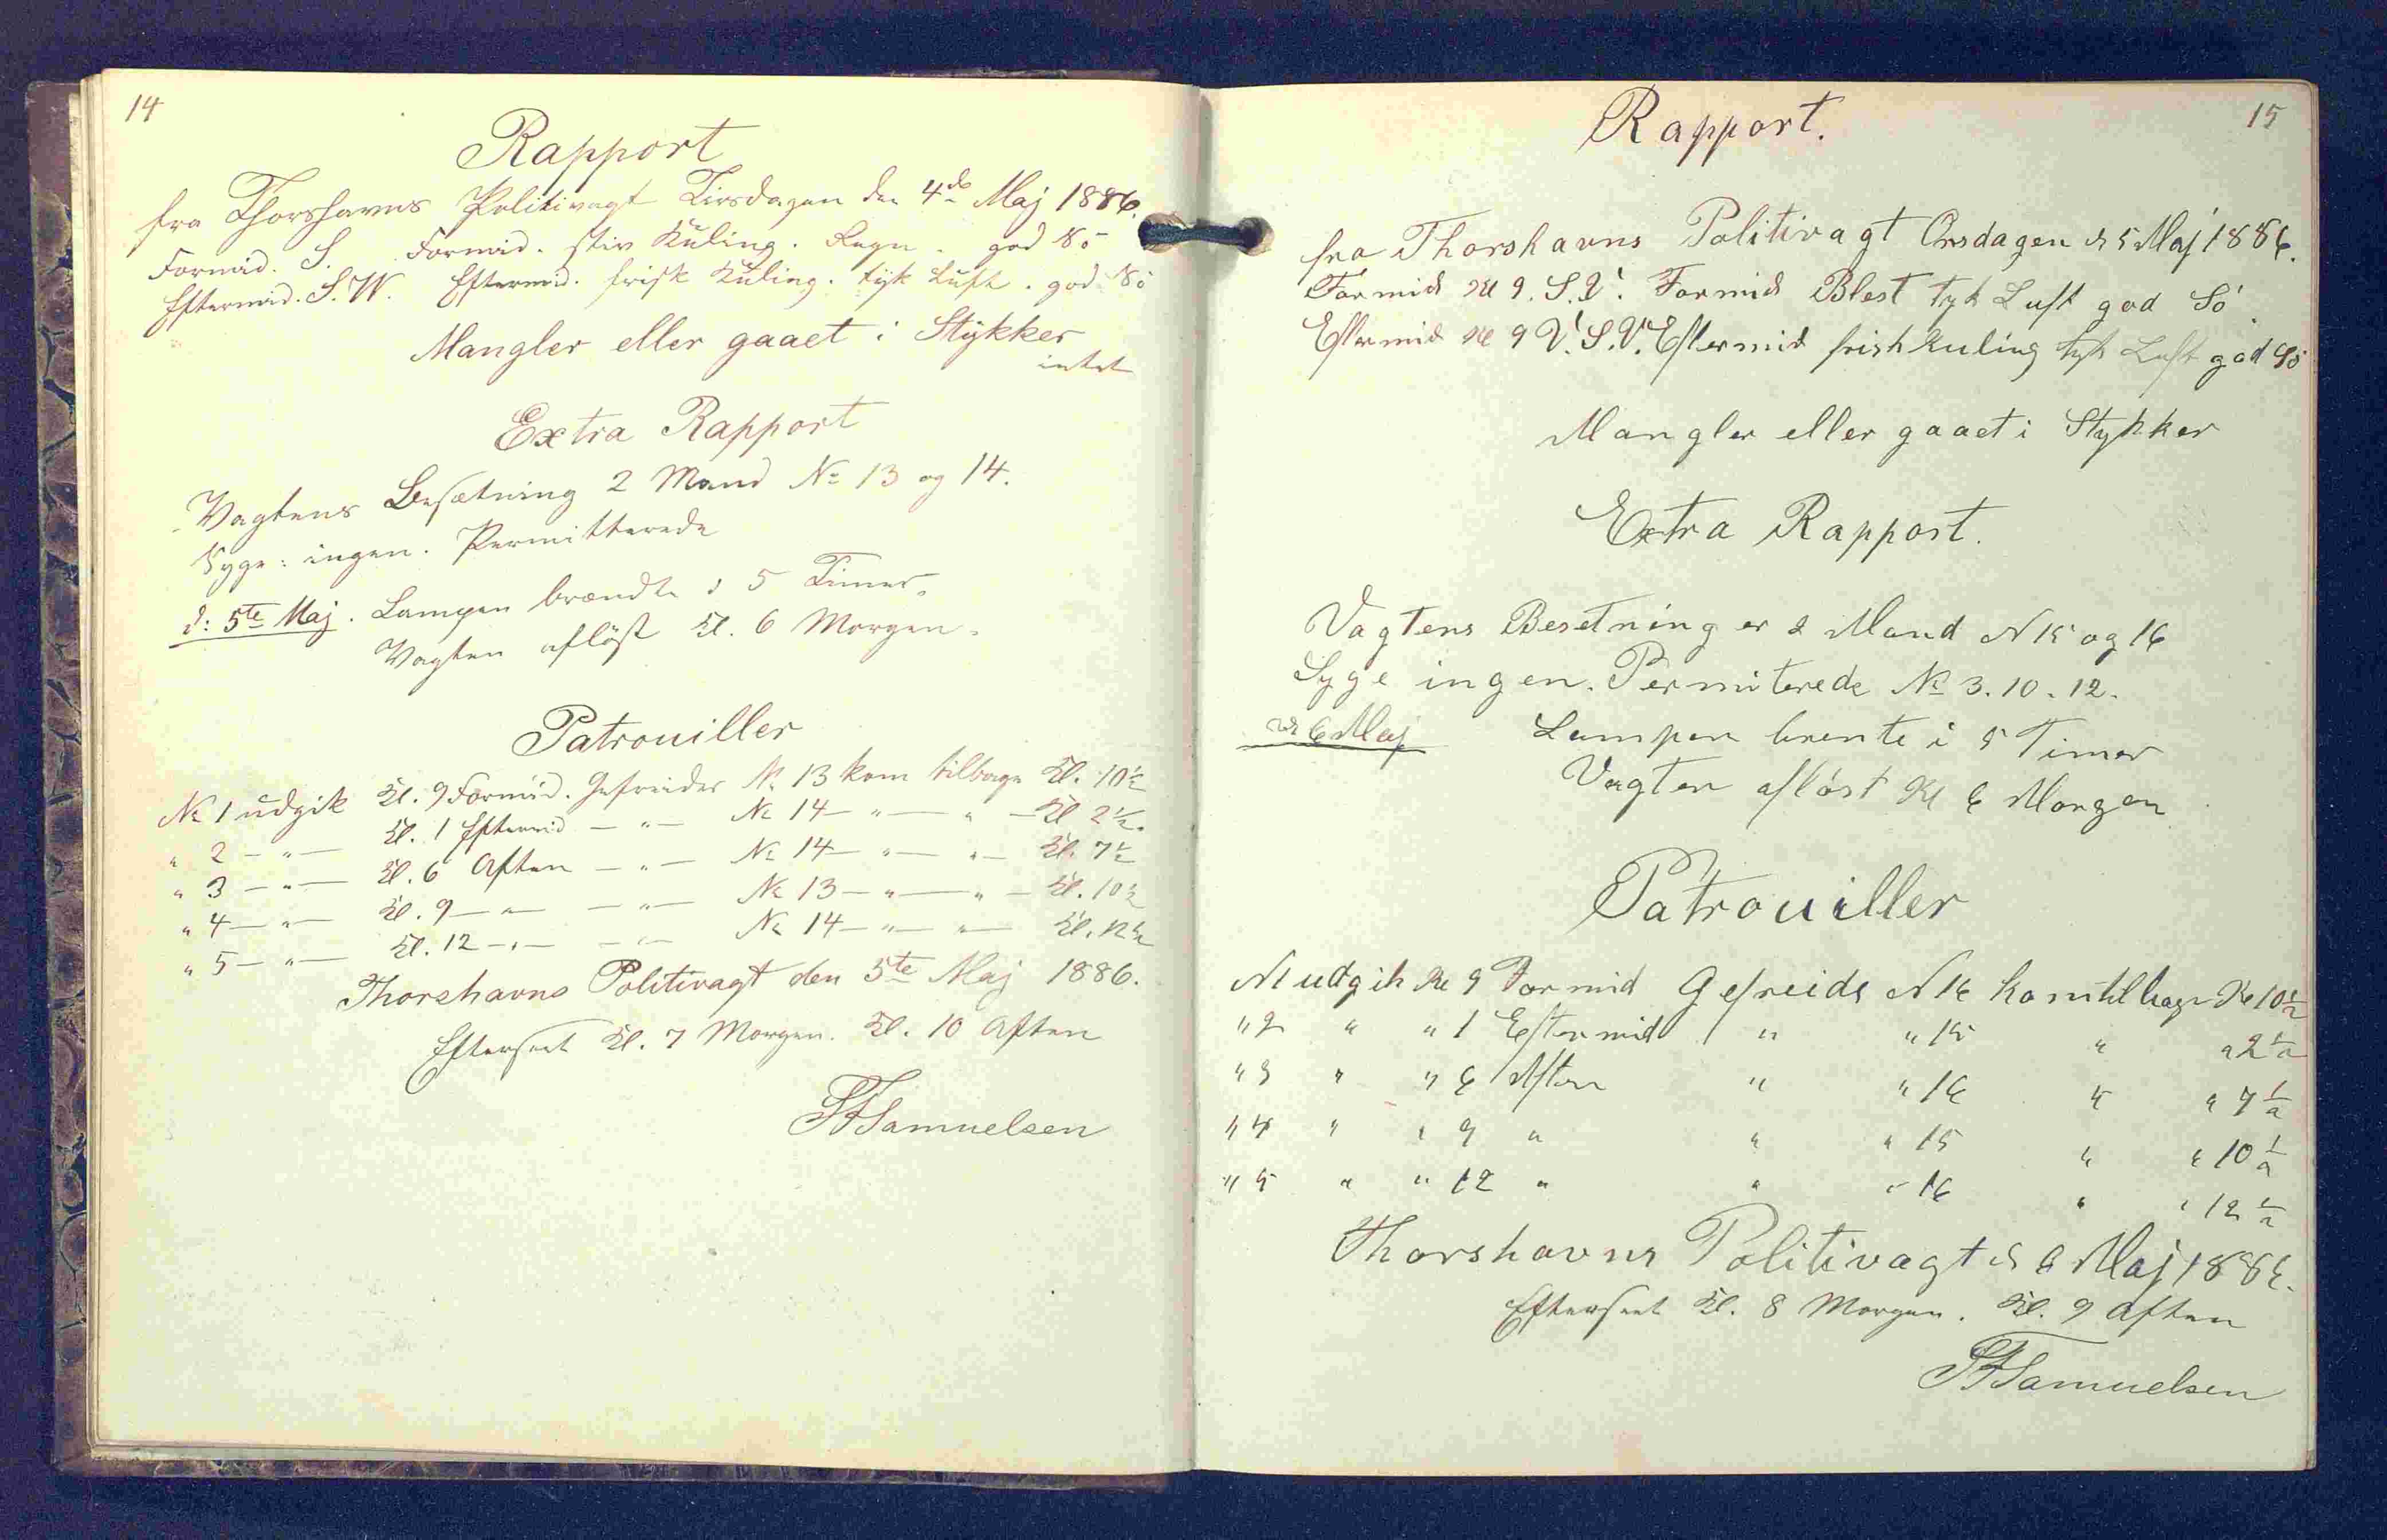 14
Rapport
fra Thorshavns Politivagt Tirsdagen den 4de Maj 1886.
Formid. S. Formid. stiv Kuling. Regn. god Sö
Eftermid. S.W. Eftermid. frisk Kuling. tyk Luft. god Sö
Mangler eller gaaet i Stykker
intet
Extra Rapport
Vagtens Besætning 2 Mand No 13 og 14.
Syge: ingen. Permitterede
d: 5te Maj. Lampen brændte i 5 Timer.
Vagten aflöst Kl. 6 Morgen.
Patrouiller
No 1 udgik Kl. 9 Formid. Gefreider No 13 kom tilbage Kl. 10½
" 2 — " — Kl. 1 Eftermid — " — No 14 — " — " — Kl 2½.
" 3 — " — Kl. 6 Aften — " — No 14 — " — " — Kl. 7½
" 4 — " — Kl. 9 — " — — " — No 13 — " — " — Kl. 10½
" 5 — " — Kl. 12 — " — — " — No 14 — " — " — Kl. 12½
Thorshavns Politivagt den 5te Maj 1886.
Efterseet Kl. 7 Morgen. Kl. 10 Aften
Samuelsen
15
Rapport.
fra Thorshavns Politivagt Onsdagen d 5 Maj 1886.
Formid Kl 9. S.V. Formid Blest tyk Luft god Sö.
Eftermid Kl 9 V.S.V. Eftermid frisk Kuling tyk Luft god Sö
Mangler eller gaaet i Stykker
Extra Rapport.
Vagtens Besetning er 2 Mand N 15 og 16
Syge ingen. Permiterede No 3. 10. 12.
d 6 Maj Lampen brente i 5 Timer
Vagten aflöst Kl 6 Morgen
Patrouiller
N 1 udgik Kl 9 Formid Gefreide N 16 kom tilbage Kl 10½
" 2 " " 1 Eftermid " " 15 " " 2½
" 3 " " 6 Aften " " 16 " " 7½
" 4 " " 9 " " " 15 " " 10½
" 5 " " 12 " " " 16 " " 12½
Thorshavns Politivagt d 6 Maj 1886.
Efterseet Kl. 8 Morgen. Kl. 9 Aften
Samuelsen